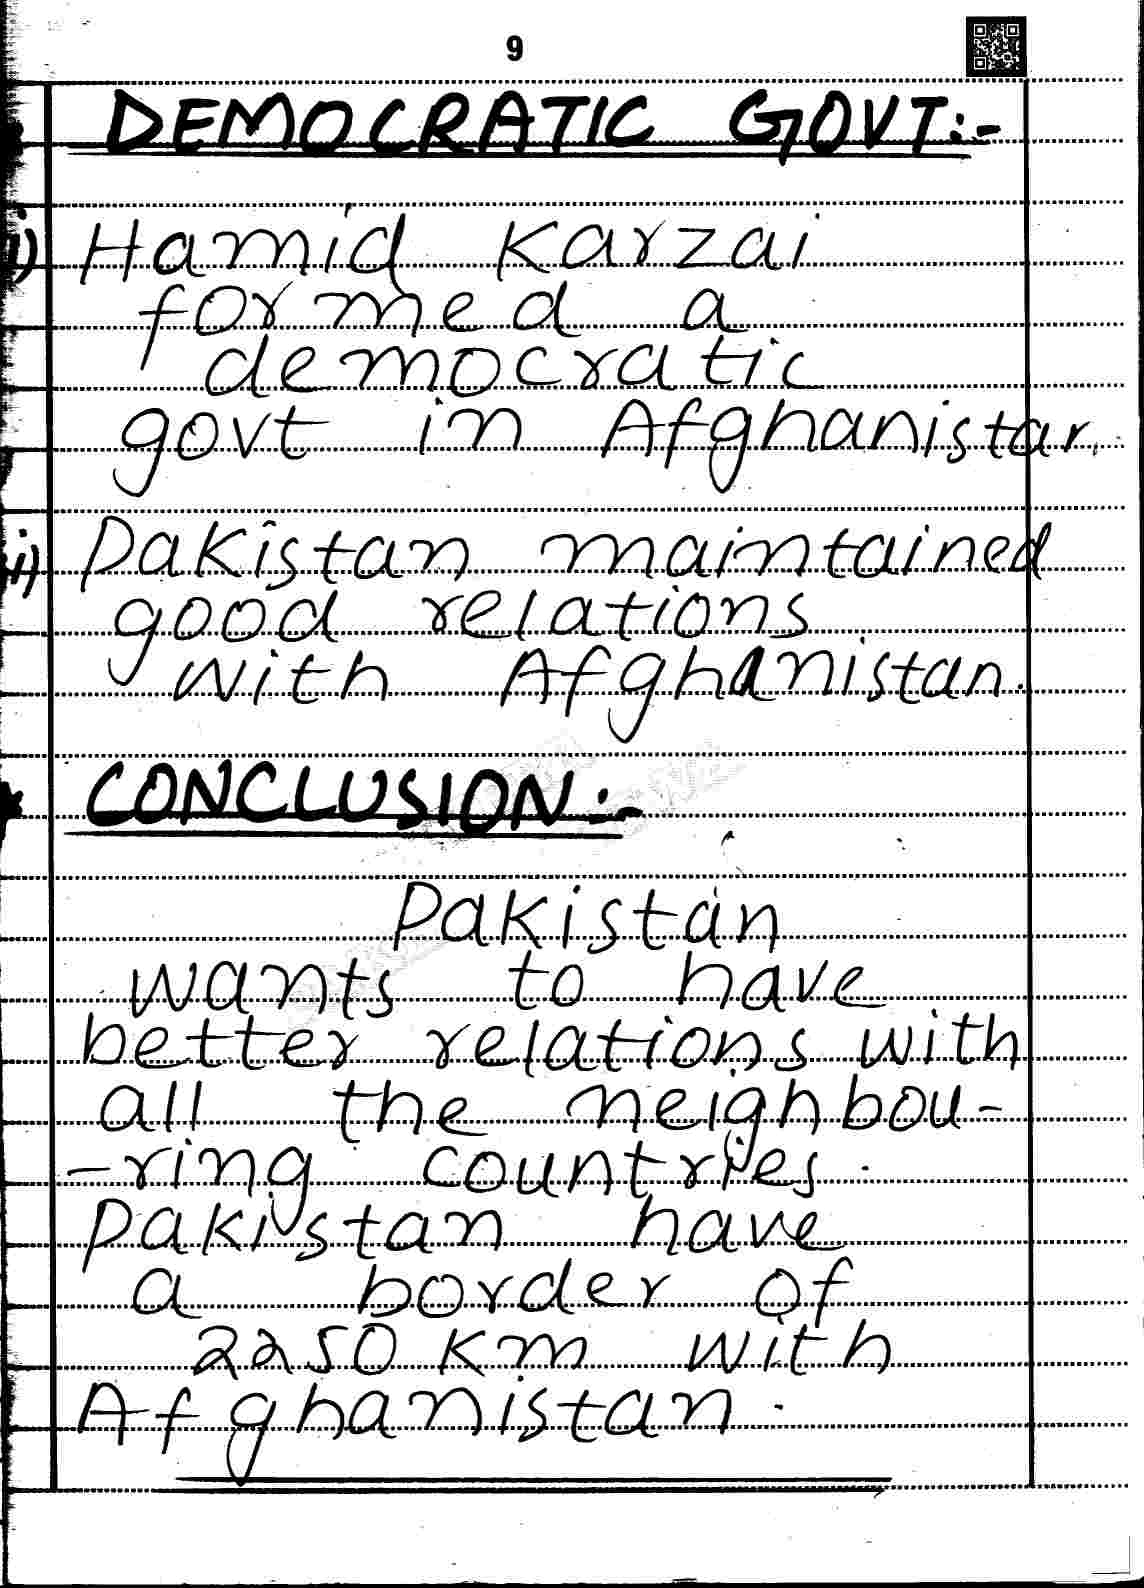 9
DEMOCRATIC GOVT:-
i) Hamid Karzai
formed a
democratic
govt in Afghanistan
ii) Pakistan maintained
good relations
with Afghanistan.
CONCLUSION:-
Pakistan
wants to have
better relations with
all the neighbou-
-ring countries.
Pakistan have
a border of
2250 Km with
Afghanistan.